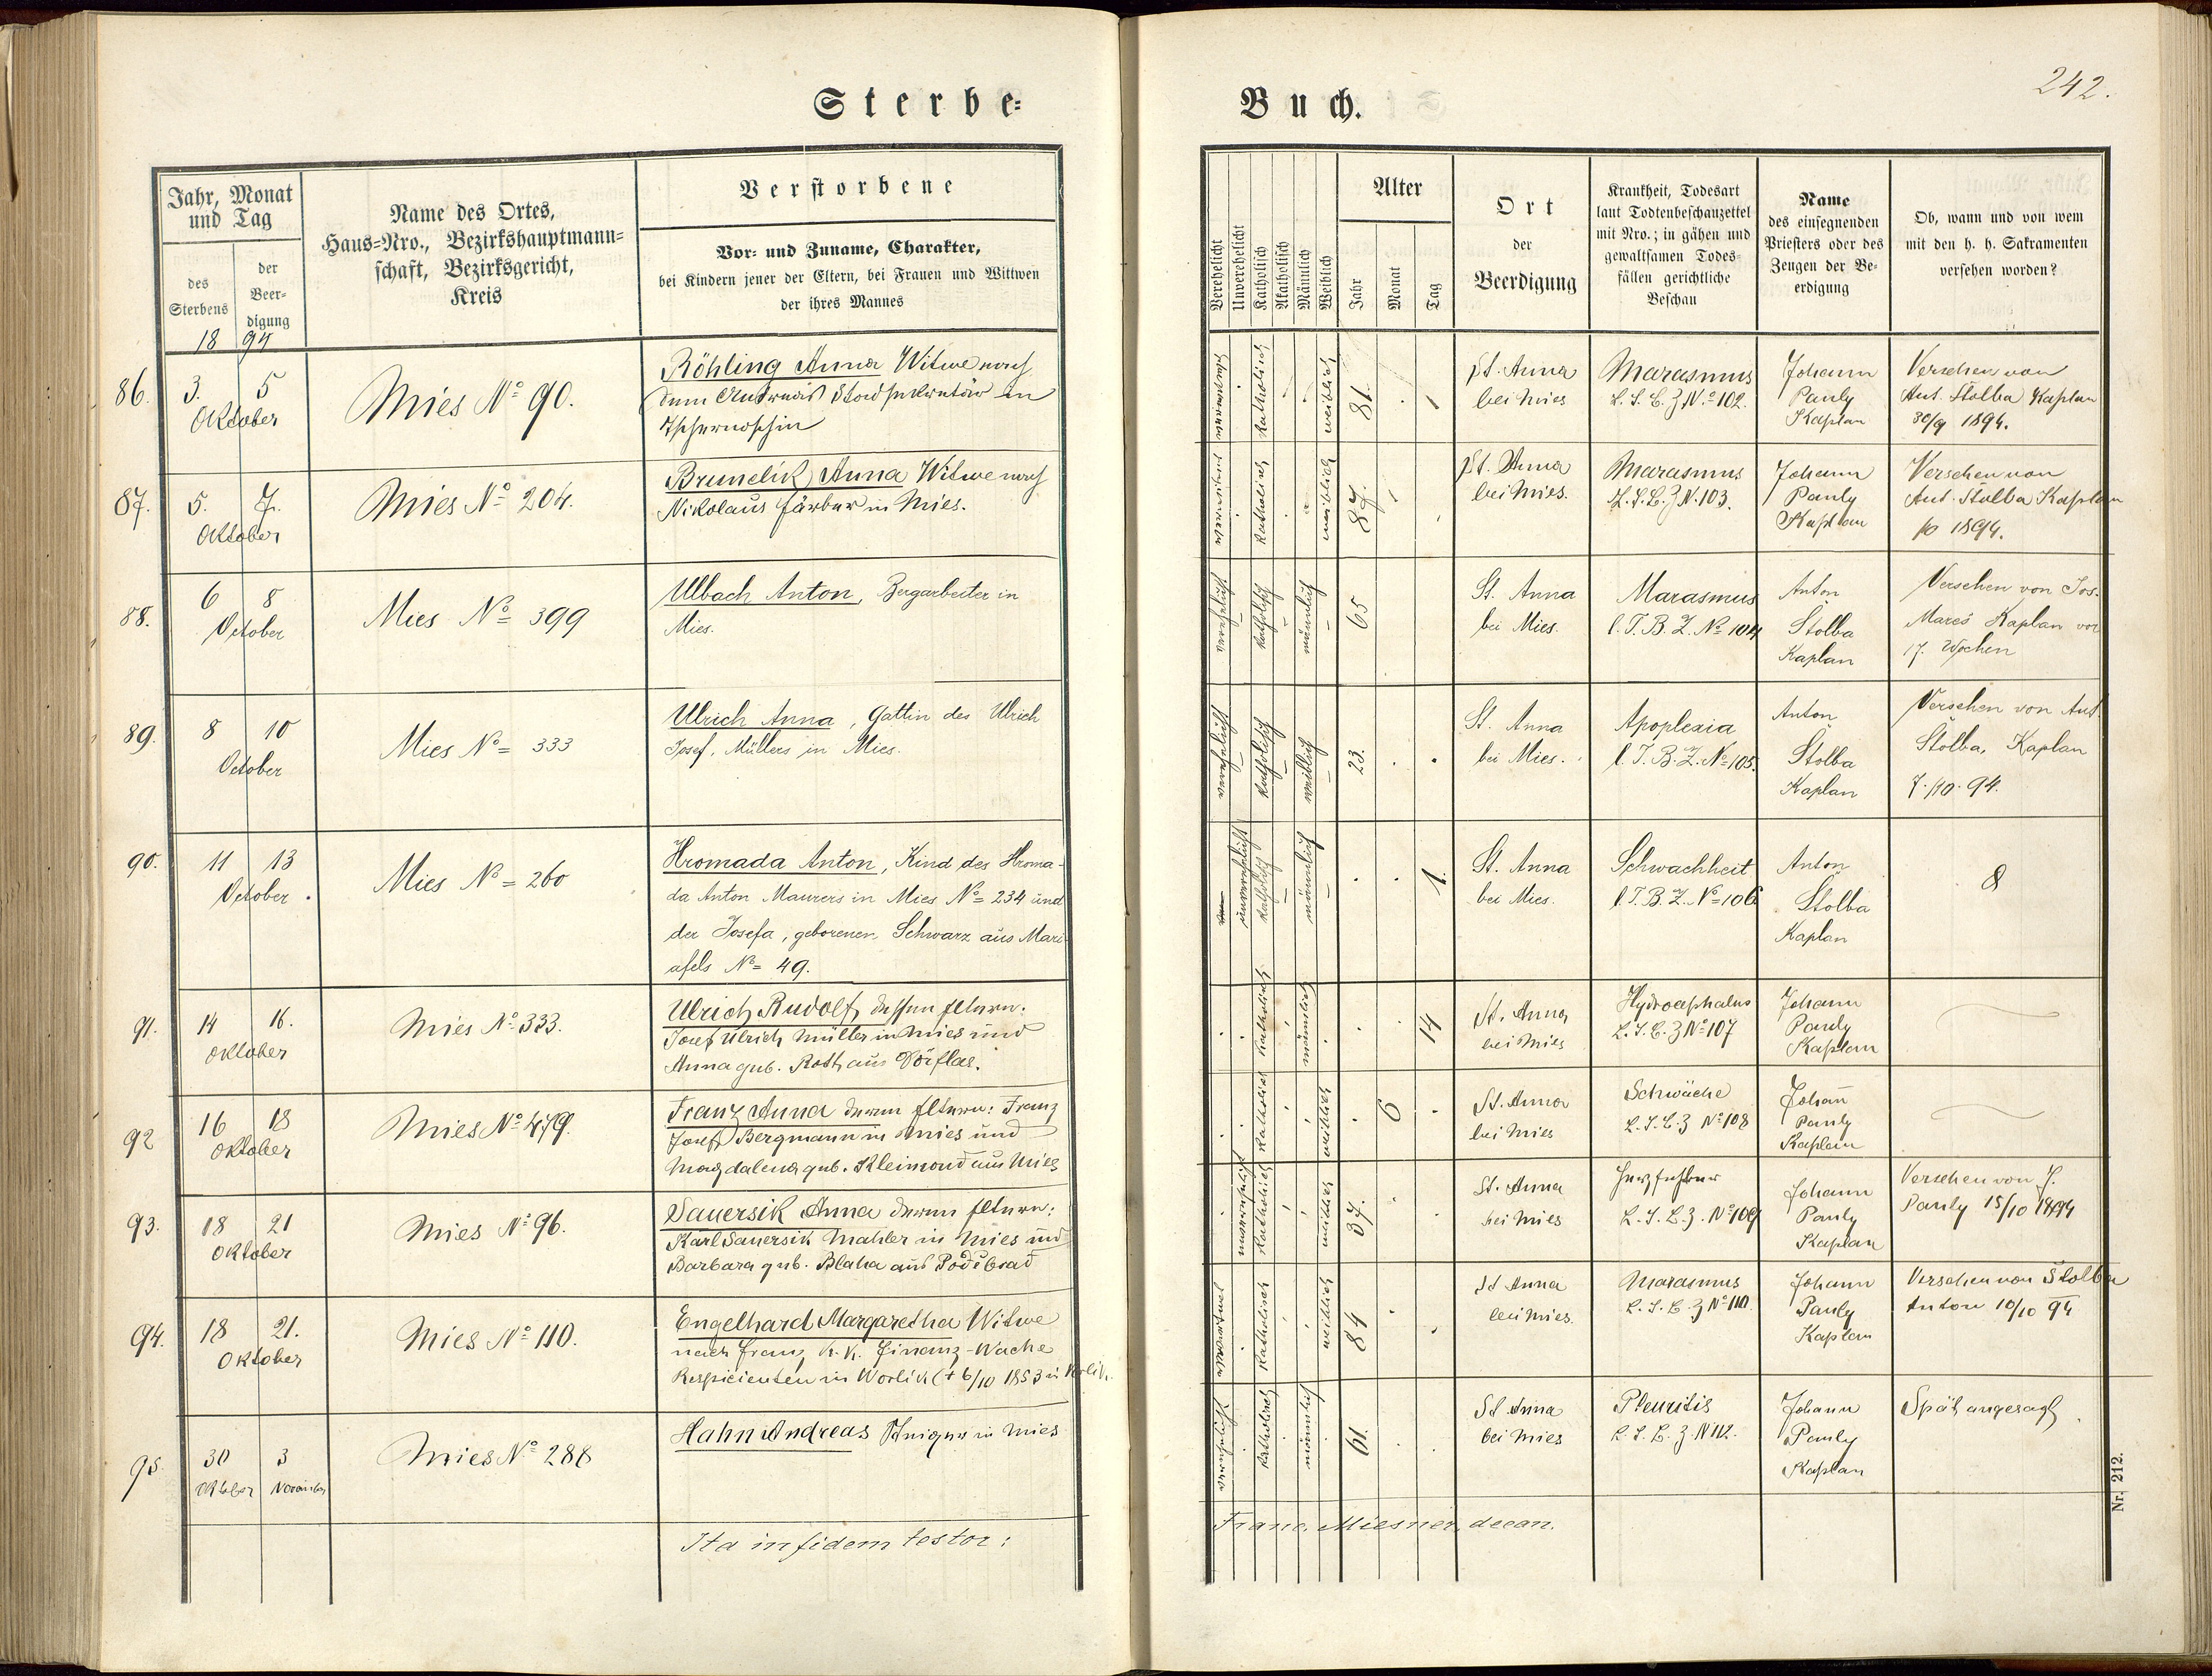 Sterbe=
Buch.
242.
Jahr, Monat
und Tag
des
Sterbens
der
Beer-
digung
18 94
Name des Ortes,
Haus=Nro., Bezirkshauptmann=
schaft, Bezirksgericht,
Kreis
Verstorbene
Vor- und Zuname, Charakter,
bei Kindern jener der Eltern, bei Frauen und Wittwen
der ihres Mannes
Verehelicht
Unverehelicht
Katholisch
Akatholisch
Männlich
Weiblich
Alter
Jahr
Monat
Tag
Ort
der
Beerdigung
Krankheit, Todesart
laut Todtenbeschauzettel
mit Nro.; in gähen und
gewaltsamen Todes-
fällen gerichtliche
Beschau
Name
des einsegnenden
Priesters oder des
Zeugen der Be-
erdigung
Ob, wann und von wem
mit den h. h. Sakramenten
versehen worden?
86. 3. 5
Oktober
Mies No 90.
Röhling Anna Witwe nach
dem Andreas Stadtsekretär in
Tschernoschin
Katholisch weiblich 81.
St. Anna
bei Mies
Marasmus
L. T. B. Z No 102.
Johann
Pauly
Kaplan
Versehen von
Ant. Štolba Kaplan
30/9 1894.
87. 5. 7.
Oktober
Mies No 204.
Brunelik Anna Witwe nach
Nikolaus Färber in Mies.
Katholisch weiblich 87.
St. Anna
bei Mies.
Marasmus
L. T. B. Z N. 103.
Johann
Pauly
Kaplan
Versehen von
Ant. Štolba Kaplan
1894.
88. 6 8
October
Mies No 399
Ulbach Anton, Bergarbeiter in
Mies.
verehelicht katholisch männlich 65
St. Anna
bei Mies.
Marasmus
l. T. B. Z. No 104
Anton
Štolba
Kaplan
Versehen von Jos.
Mareš Kaplan vor
17. Wochen
89. 8 10
October
Mies No 333
Ulrich Anna, Gattin des Ulrich
Josef, Müllers in Mies.
verehelicht katholisch weiblich 23.
St. Anna
bei Mies.
Apoplexia
l. T. B. Z. No 105.
Anton
Štolba
Kaplan
Versehen von Ant.
Štolba, Kaplan
7./10. 94.
90. 11 13
October.
Mies No 260
Hromada Anton, Kind des Hroma-
da Anton Maurers in Mies No 234 und
der Josefa, geborenen Schwarz aus Mari-
afels No 49.
unverehelicht katholisch männlich 1.
St. Anna
bei Mies.
Schwachheit
l. T. B. Z. No 106
Anton
Štolba
Kaplan
91. 14 16.
Oktober
Mies No 333.
Ulrich Rudolf, dessen Eltern:
Josef Ulrich Müller in Mies und
Anna geb. Roth aus Dörflas.
Katholisch männlich 14
St. Anna
bei Mies
Hydrocephalus
L. T. B. Z No 107
Johann
Pauly
Kaplan
92 16 18
Oktober
Mies No 479.
Franz Anna deren Eltern: Franz
Josef Bergmann in Mies und
Magdalena geb. Kleimond aus Mies
Katholisch weiblich 6
St. Anna
bei Mies
Schwäche
L. T. B. Z No 108
Johañ
Pauly
Kaplan
93. 18 21
Oktober
Mies No 96.
Sauersik Anna deren Eltern:
Karl Sauersik Mahler in Mies und
Barbara geb. Blaha aus Poděbrad
unverehelicht Katholisch weiblich 37.
St. Anna
bei Mies
Herzfehler
L. T. B. Z. No 109
Johann
Pauly
Kaplan
Versehen von J.
Pauly 15/10 1894
94. 18 21.
Oktober
Mies No 110.
Engelhard Margaretha Witwe
nach Franz k. k. Finanz-Wache
Respicienten in Worlik († 6/10 1853 in Worlik.
verwitwet Katholisch weiblich 84
St Anna
bei Mies.
Marasmus
L. T. B. Z No 110.
Johann
Pauly
Kaplan
Versehen von Štolba
Anton 10/10 94
95. 30 3
Oktober November
Mies No 288
Hahn Andreas in Mies
verehelicht Katholisch männlich 61.
St Anna
bei Mies
Pleuritis
L. T. B. Z. N 112.
Johann
Pauly
Kaplan
Spät angesagt.
Ita in fidem testor:
Franc. Miesner, decan.
Nr. 212.